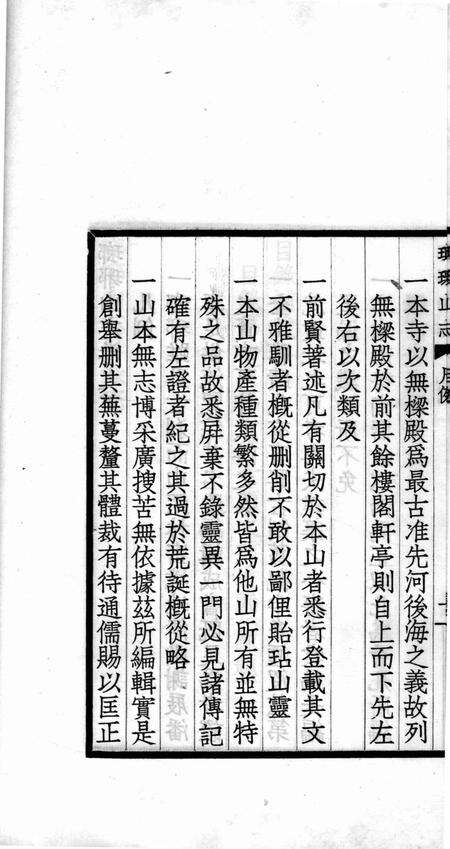 瑯琊山志
一本寺以無樑殿爲最古准先河後海之義故列
無樑殿於前其餘樓閣軒亭則自上而下先左
後右以次類及
一前賢著述凡有關切於本山者悉行登載其文
不雅馴者槪從删削不敢以鄙俚貽玷山靈
一本山物產種類繁多然皆爲他山所有並無特
殊之品故悉屏棄不錄靈異一門必見諸傳記
確有左證者紀之其過於荒誕槪從略
一山本無志博采廣搜苦無依據茲所編輯實是
創舉删其蕪蔓釐其體裁有待通儒賜以匡正